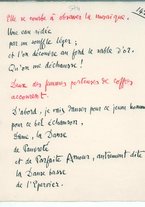 Elle se courbe à observer la mosaïque.
Une eau ridée
par un souffle léger ;
et l'on découvre au fond le sable d'or.
Qu'on me déchausse !
Deux des femmes porteuses de coffres
accourent.
D'abord, je vais danser pour ce jeune homme
pour ce bel échanson,
Dame, la Danse
de Pauvreté
et de Parfaite Amour, autrement dite
la Danse basse
de l'Épervier.